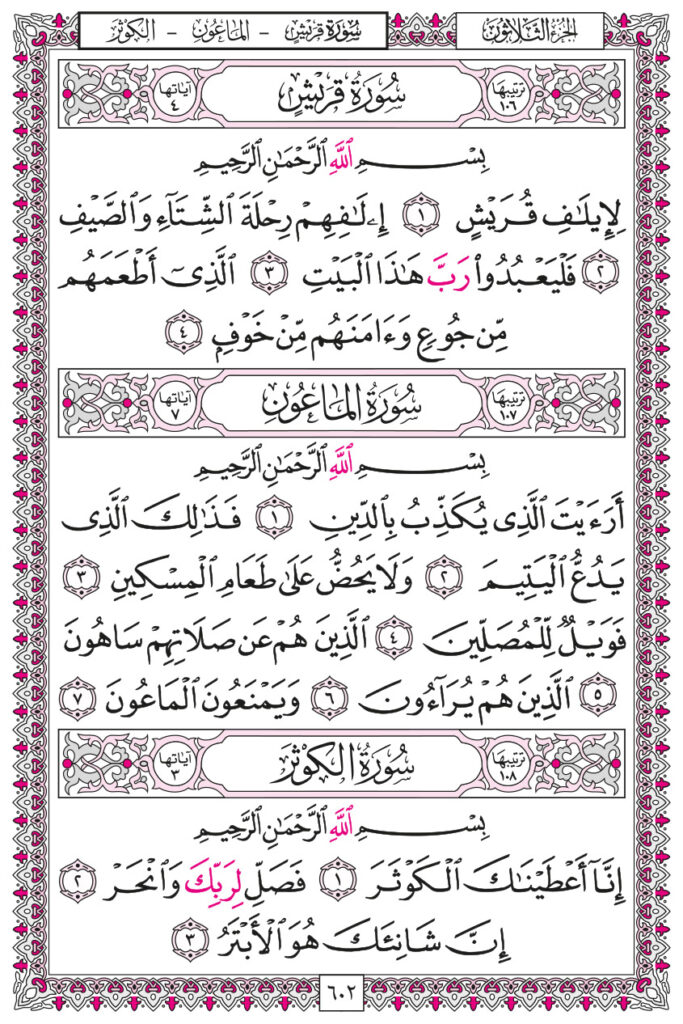 الجزء الثلاثون
سورة قريش - الماعون - الكوثر
ترتيبها ١٠٦ سُورَةُ قُرَيْشٍ آياتها ٤
بِسْمِ ٱللَّهِ ٱلرَّحْمَٰنِ ٱلرَّحِيمِ
لِإِيلَٰفِ قُرَيْشٍ ١ إِۦلَٰفِهِمْ رِحْلَةَ ٱلشِّتَآءِ وَٱلصَّيْفِ
٢ فَلْيَعْبُدُوا۟ رَبَّ هَٰذَا ٱلْبَيْتِ ٣ ٱلَّذِىٓ أَطْعَمَهُم
مِّن جُوعٍ وَءَامَنَهُم مِّنْ خَوْفٍۭ ٤
ترتيبها ١٠٧ سُورَةُ المَاعُونِ آياتها ٧
بِسْمِ ٱللَّهِ ٱلرَّحْمَٰنِ ٱلرَّحِيمِ
أَرَءَيْتَ ٱلَّذِى يُكَذِّبُ بِٱلدِّينِ ١ فَذَٰلِكَ ٱلَّذِى
يَدُعُّ ٱلْيَتِيمَ ٢ وَلَا يَحُضُّ عَلَىٰ طَعَامِ ٱلْمِسْكِينِ ٣
فَوَيْلٌ لِّلْمُصَلِّينَ ٤ ٱلَّذِينَ هُمْ عَن صَلَاتِهِمْ سَاهُونَ
٥ ٱلَّذِينَ هُمْ يُرَآءُونَ ٦ وَيَمْنَعُونَ ٱلْمَاعُونَ ٧
ترتيبها ١٠٨ سُورَةُ الكَوْثَرِ آياتها ٣
بِسْمِ ٱللَّهِ ٱلرَّحْمَٰنِ ٱلرَّحِيمِ
إِنَّآ أَعْطَيْنَٰكَ ٱلْكَوْثَرَ ١ فَصَلِّ لِرَبِّكَ وَٱنْحَرْ ٢
إِنَّ شَانِئَكَ هُوَ ٱلْأَبْتَرُ ٣
٦٠٢